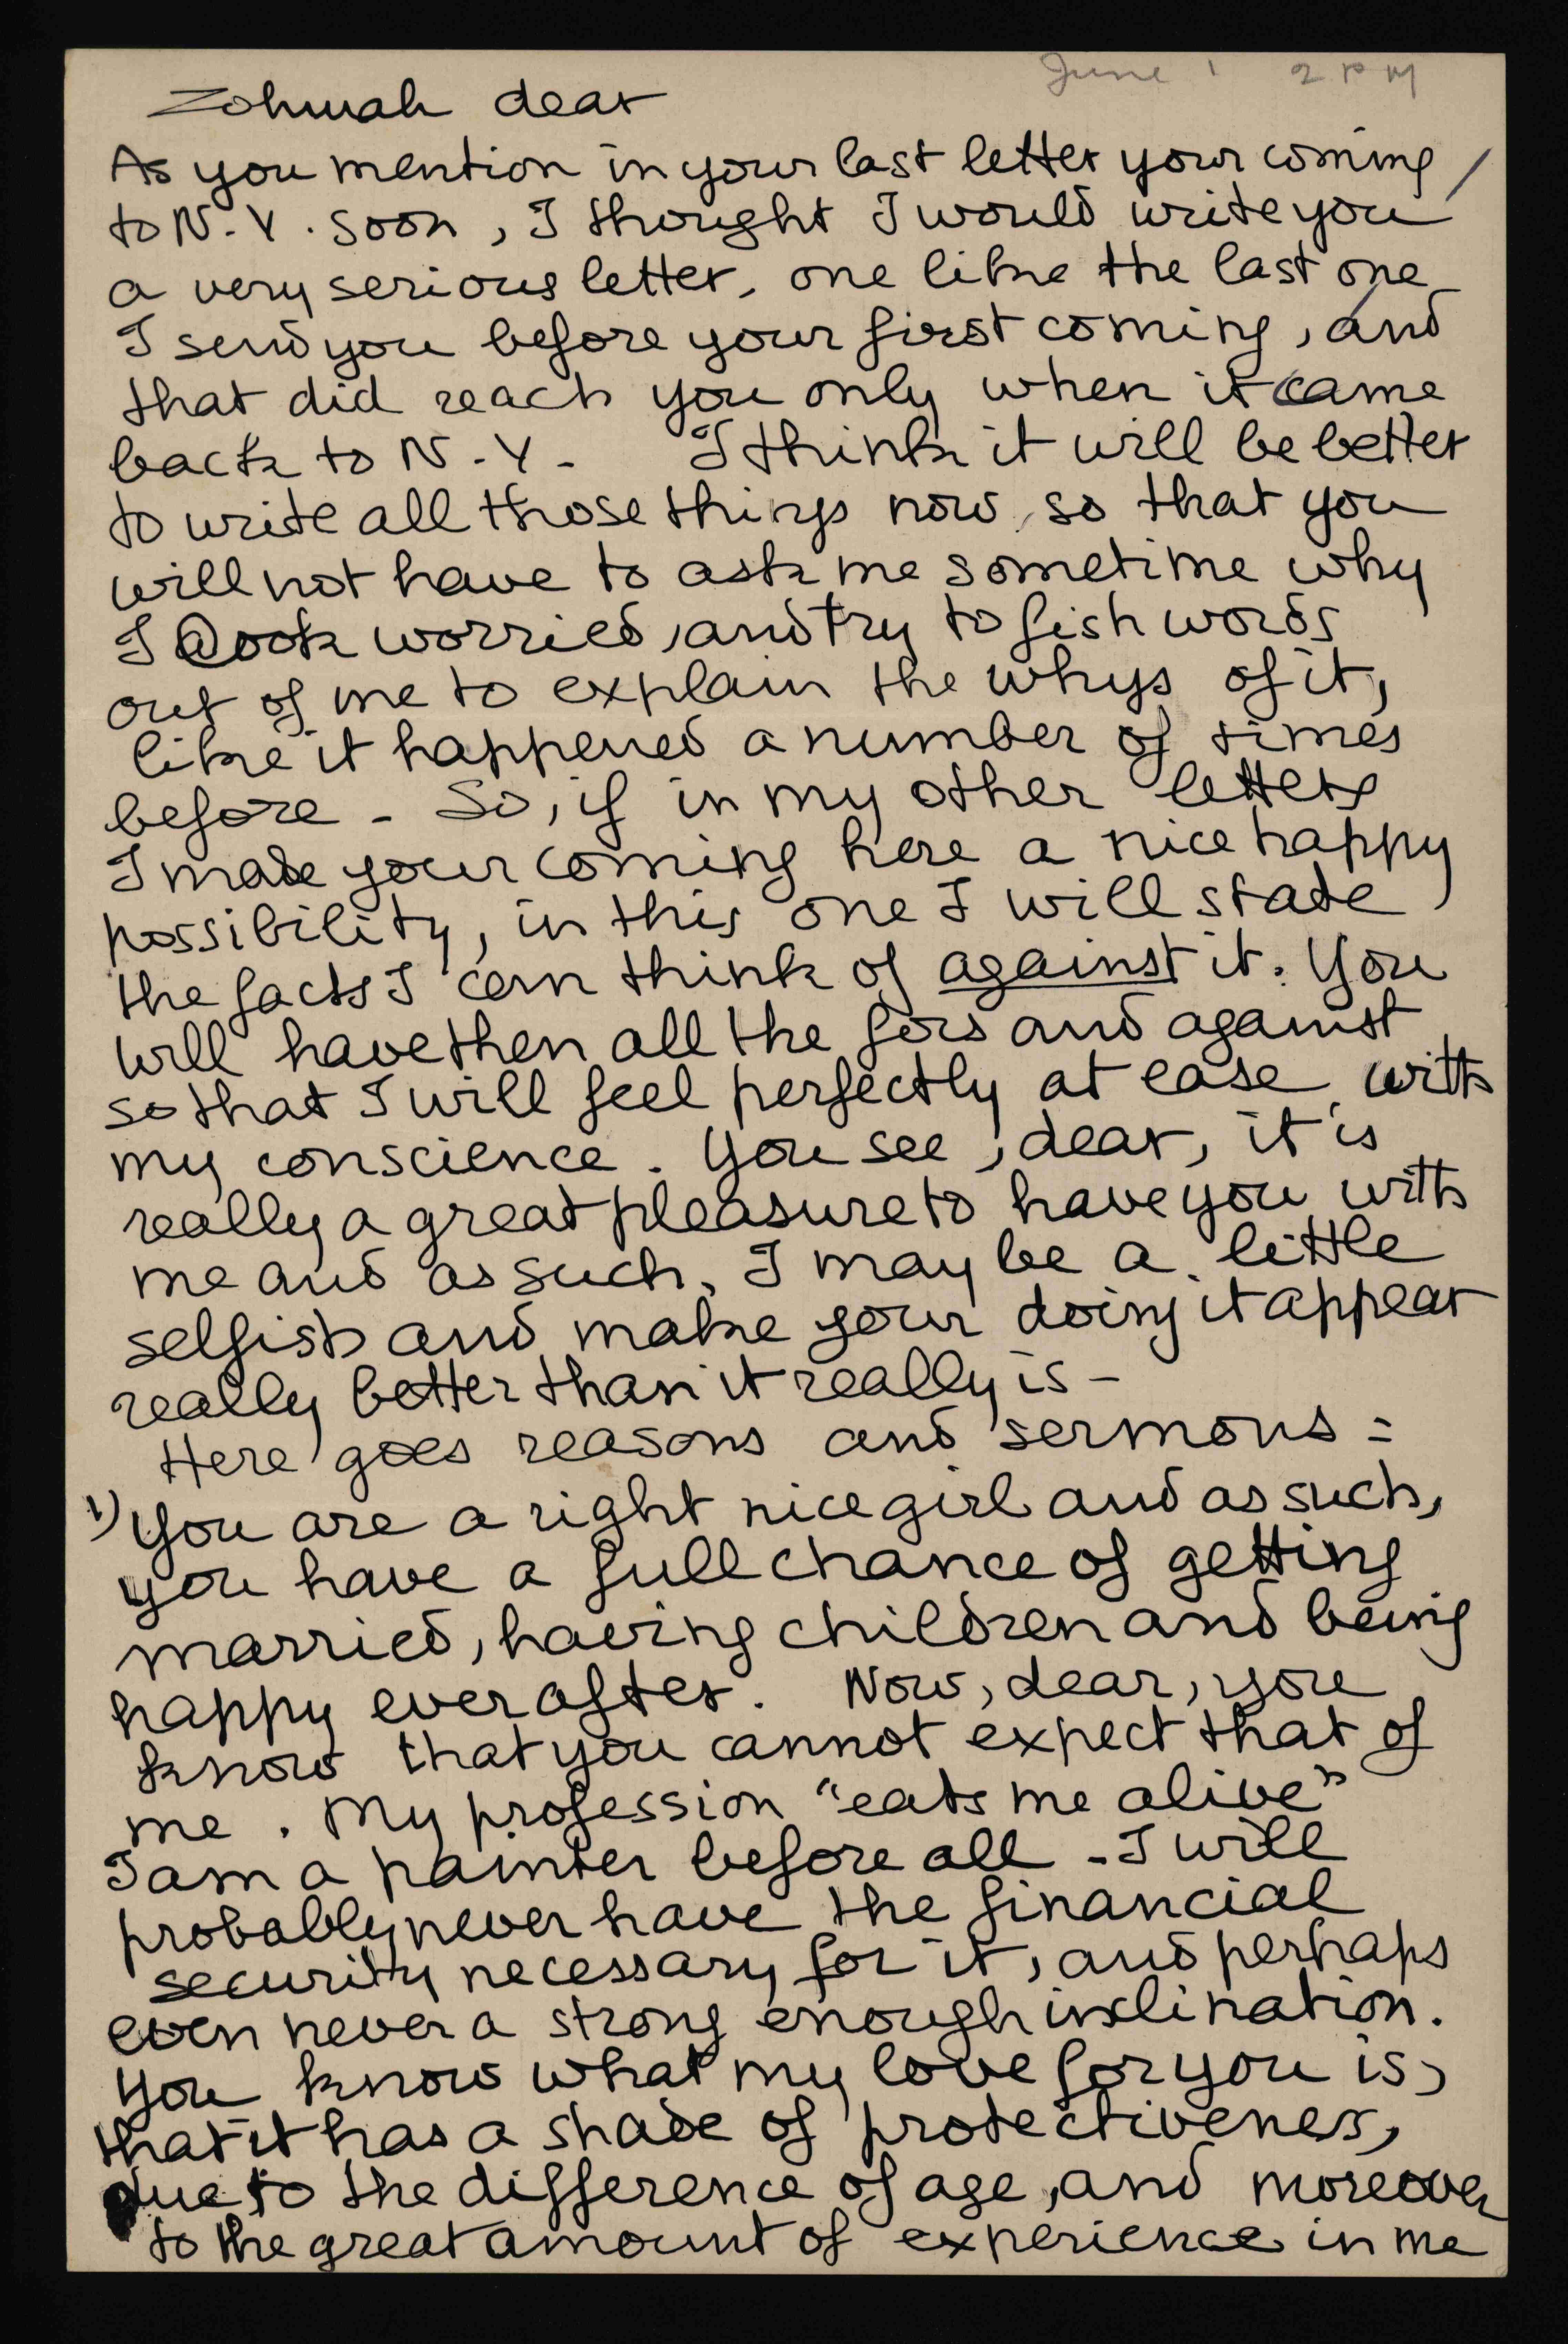 June 1 2 PM
Zohmah dear
As you mention in your last letter your coming
to N.Y. soon, I thought I would write you
a very serious letter, one like the last one
I send you before your first coming, and
that did reach you only when it came
back to N.Y. I think it will be better
to write all those things now, so that you
will not have to ask me sometime why
I look worried, and try to fish words
out of me to explain the whys of it,
like it happened a number of times
before - So, if in my other letters
I made your coming here a nice happy
possibility, in this one I will state
the facts I can think of against it. You
will have then all the fors and against
so that I will feel perfectly at ease with
my conscience. You see, dear, it is
really a great pleasure to have you with
me and as such, I may be a little
selfish and make your doing it appear
really better than it really is -
Here goes reasons and sermons =
1) You are a right nice girl and as such,
you have a full chance of getting
married, having children and being
happy ever after. Now, dear, you
know that you cannot expect that of
me. My profession "eats me alive"
I am a painter before all - I will
probably never have the financial
security necessary for it, and perhaps
even never a strong enough inclination.
You know what my love for you is,
that it has a shade of protectiveness,
due to the difference of age, and moreover
to the great amount of experience in me